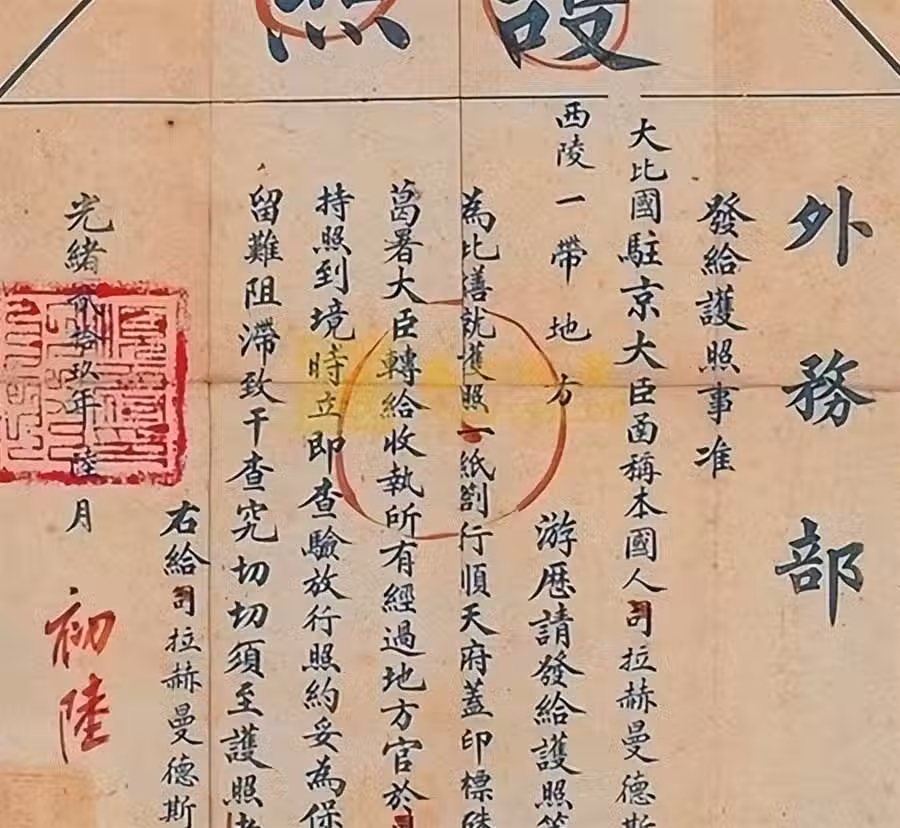 護照
外務部
發給護照事准
大比國駐京大臣函稱本國人司拉赫曼德斯
西陵一帶地方
游歷請發給護照等
為此繕就護照一紙劄行順天府蓋印標硃
葛署大臣轉給收執所有經過地方官於
持照到境時立即查驗放行照約妥為保
留難阻滯致干查究切切須至護照者
右給司拉赫曼德斯
光緒貳拾玖年陸月初陸